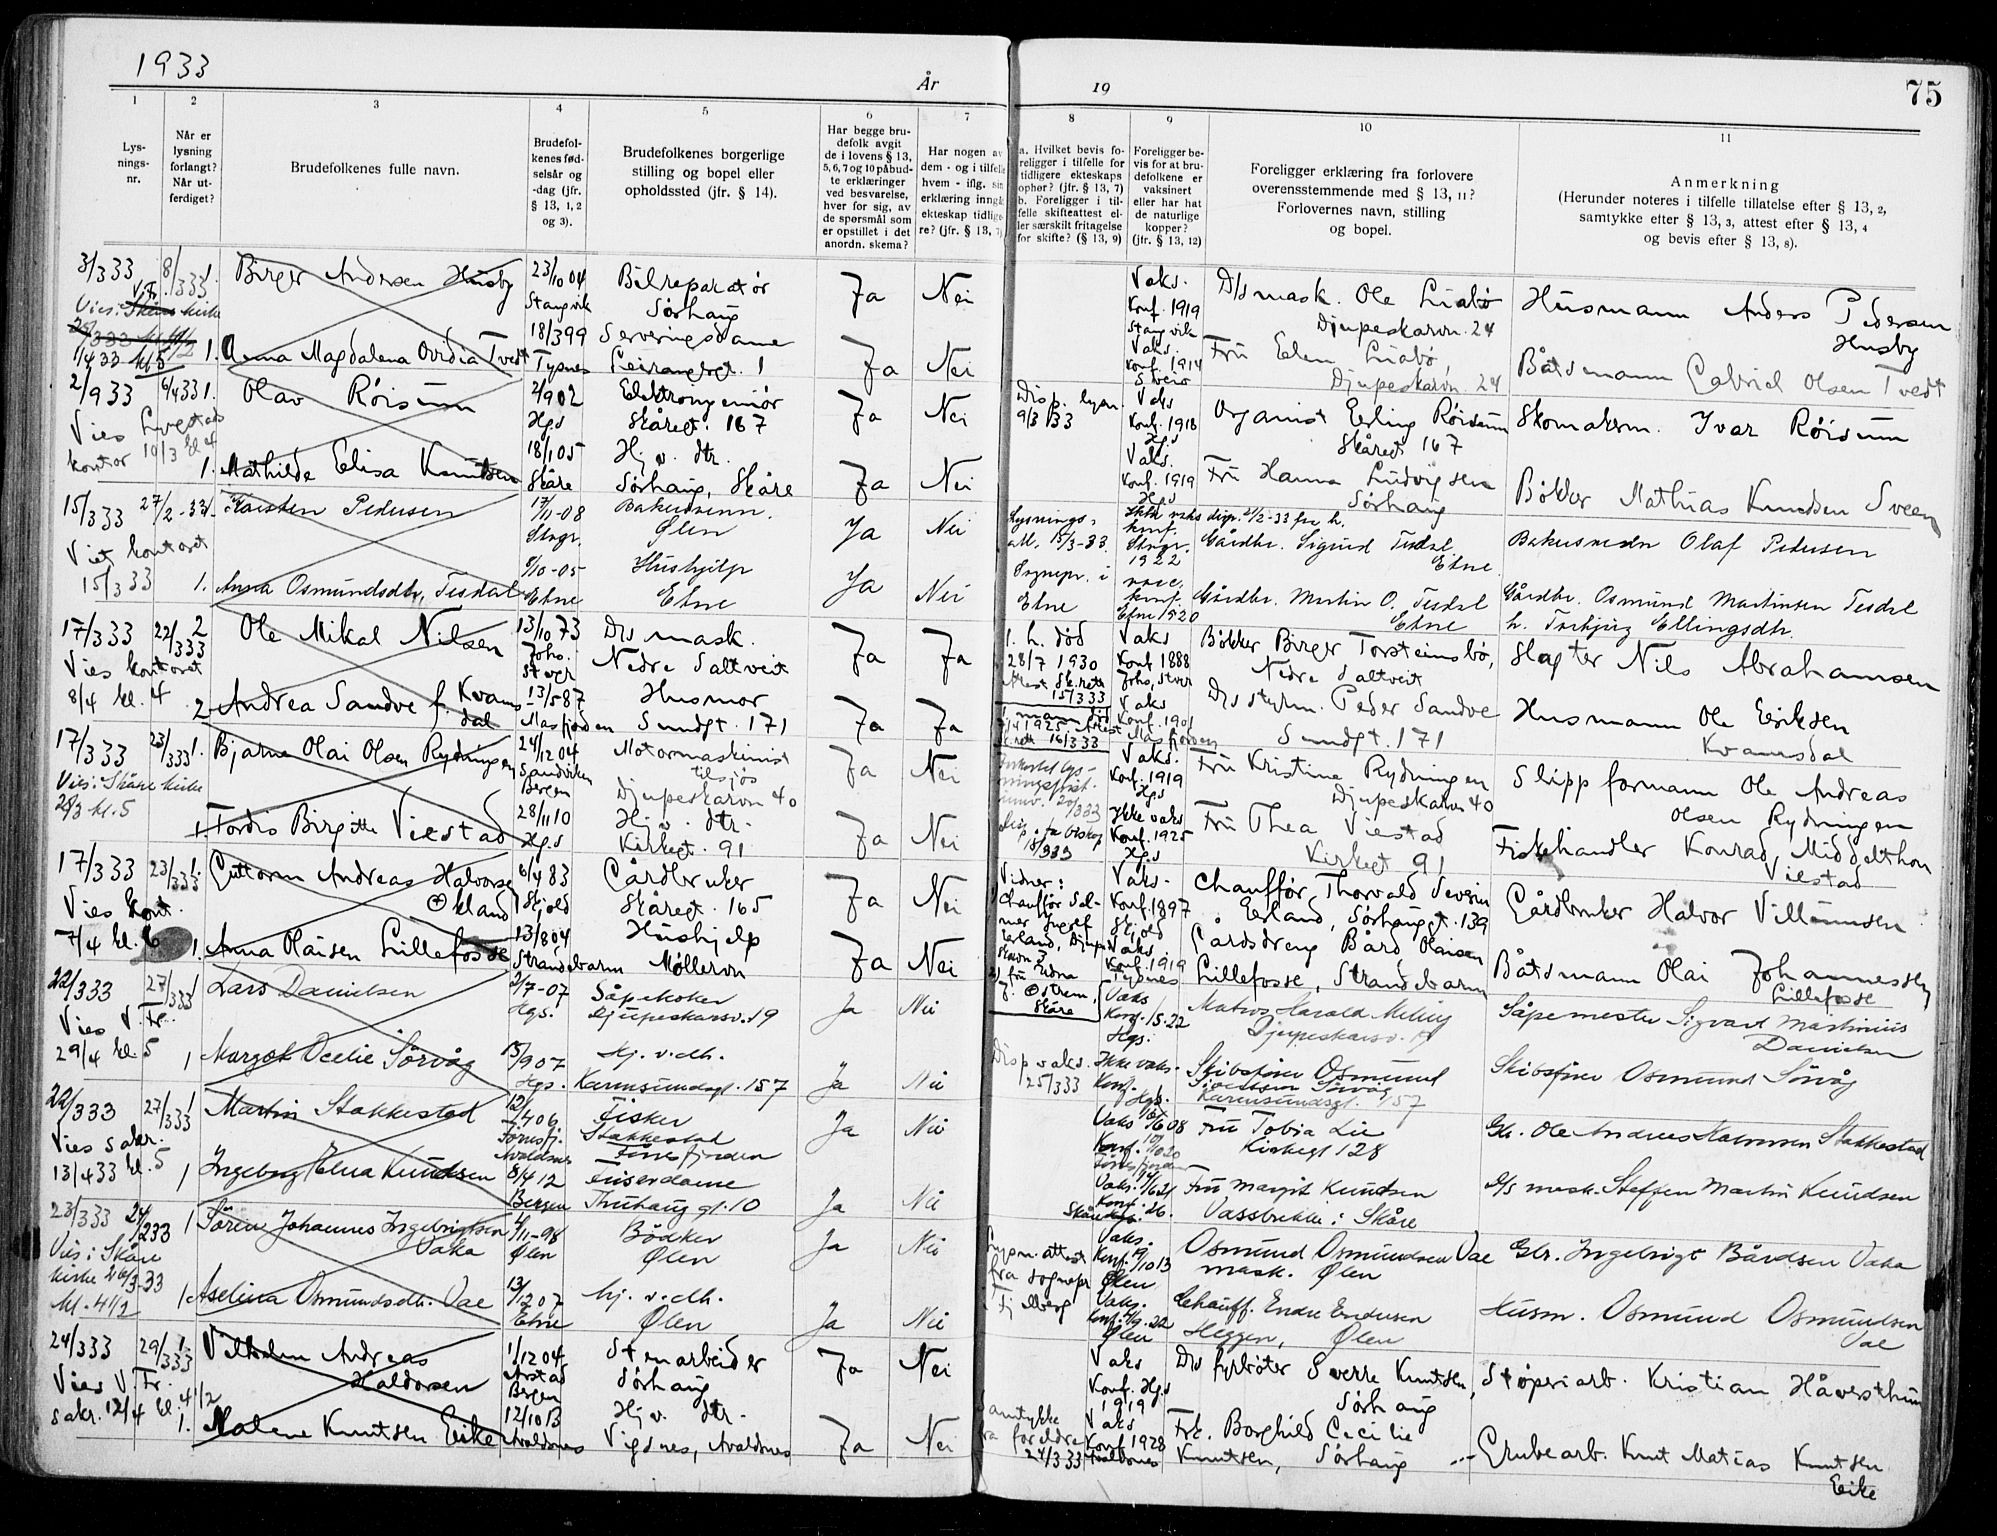 1933
År
19
75
1 2 3 4 5 6 7 8 9 10 11
Lys-
nings-
nr.
Når er
lysning
forlangt?
Når ut-
ferdiget?
Brudefolkenes fulle navn.
Brudefol-
kenes fød-
selsår og
-dag (jfr.
§ 13, 1, 2
og 3).
Brudefolkenes borgerlige
stilling og bopel eller
opholdssted (jfr. § 14).
Har begge bru-
defolk avgit
de i lovens § 13,
5, 6, 7 og 10 påbud-
te erklæringer
ved besvarelse,
hver for sig, av
de spørsmål som
er opstillet i det
anordn. skema?
Har nogen av
dem - og i tilfelle
hvem - iflg. sin
erklæring inngå
ekteskap tidlige-
re? (jfr. § 13, 7)
a. Hvilket bevis fo-
religger i tilfelle for
tidligere ekteskaps
ophør? (jfr. § 13, 7)
b. Foreligger i til-
felle skifteattest el-
ler særskilt fritagelse
for skifte? (§ 13, 9)
Foreligger be-
vis for at bru-
defolkene er
vaksinert
eller har hat
de naturlige
kopper?
(jfr. § 13, 12)
Foreligger erklæring fra forlovere
overensstemmende med § 13, 11?
Forlovernes navn, stilling
og bopel.
Anmerkning
(Herunder noteres i tilfelle tillatelse efter § 13, 2,
samtykke efter § 13, 3, attest efter § 13, 4
og bevis efter § 13, 8).
3/3 33 8/3 33 1. Birger Andersen Husby 23/10 04 Bilreparatør Ja Nei Vaks. D/s mask. Ole Liabø Husmann Anders Pedersen
Stangvik Sørhaug Konf. 1919 Djupeskarvn. 24 Husby
Stangvik
1/4 33 kl 5 1. Anna Magdalena Ovidia Tvedt 18/3 99 Serveringsdame Ja Nei Vaks. Fru Elen Liabø Båtsmann Gabriel Olsen Tvedt
Tysnes 1 Konf. 1914 Djupeskarvn. 24
Sveio
2/9 33 6/4 33 1. Olav Röisum 2/9 02 Elektroingeniør Ja Nei 9/3 33 Vaks Organist Erling Röisum Skomakerm. Ivar Röisum
Vies Hgs Skåregt. 167 Konf. 1918 Skåregt 167
kontor 10/3 kl 4 Hgs
1. Mathilde Elisa Knutsen 18/1 05 Hj. v. dtr. Ja Nei Vaks. Fru Hanna Ludvigsen Bøkker Mathias Knudsen Sveen
Skåre Sørhaug, Skåre Konf. 1919 Sørhaug
Hgs
15/3 33 27/2-33 1. Karsten Pedersen 17/11-08 Ja Nei Gårdbr. Sigurd Tesdal Olaf Pedersen
Viet kontoret Stvgr. Ølen konf. Stvgr. 1922 Etne
15/3 33 1. Anna Osmundsdtr. Tesdal 9/10-05 Hushjelp Ja Nei Sognepr. i Etne Gårdbr. Martin O. Tesdal Gårdbr. Osmund Martinsen Tesdal
Etne Etne konf. Etne 1920 Etne
17/3 33 22/3 33 2 Ole Mikal Nilsen 13/10 73 D/s mask. Ja Ja 1. h. död Vaks Bökker Birger Torsteinsbö, Slagter Nils Abrahamsen
Vies kontoret Nedre Saltveit 28/7 1930 Konf 1888 Nedre Saltveit
8/4 kl. 4 15/3 33
2 Andrea Sandve f. Kvams-
dal 13/5 87 Husmor Ja Ja Vaks D/s styrm. Peder Sandve Husmann Ole Eriksen
Masfjorden Sundgt. 171 16/3 33 Konf. 1901 Masfjorden Sundgt. 171 Kvamsdal
17/3 33 23/3 33 1. Bjarne Olai Olsen Rydningen 24/12 04 Motormaskinist Ja Nei Vaks. Fru Kristine Rydningen Slippformann Ole Andreas
Vies i Skåre kirke Sandviken Bergen tilsjøs Djupeskarvn 40 Konf. 1919 Hgs Djupeskarvn 40 Olsen Rydningen
28/3 kl. 5
1 Tordis Birgitte Viestad 28/11 10 Hj. v. dtr. Ja Nei Ikke vaks Fru Thea Viestad Fiskehandler Konrad Middelthon
Hgs Kirkegt. 91 18/3 33 Konf. 1925 Hgs Kirkegt 91 Viestad
17/3 33 23/3 33 1. Guttorm Andreas Halvorsen
Økland 6/4 83 Gårdbruker Ja Nei Vidner: Vaks. Chauffør Thorvald Severin Gårdbruker Halvor Villumsen
Vies kont. Skjold Skåregt. 165 Chauffør Konf. 1897 Skjold Eerland, Sørhauggt. 139
7/4 kl. 6 1. Anna Olaisen Lillefosse 13/8 04 Hushjelp Ja Nei Vaks Gårdsdreng Bård Olaisen Båtsmann Olai Johannessen
Strandebarm Møllervn Konf. 1919 Tysnes Lillefosse, Strandebarm Lillefosse
22/3 33 27/3 33 1 Lars Danielsen 2/7-07 Såpekoker Ja Nei Østrem, Skåre Vaks Harald Meling Såpemester Sigvart Martinius
Vies V. Fr. Hgs. Djupeskarsv. 19 Konf. 15-22 Hgs. Djupeskarsv. 19 Danielsen
29/4 kl. 5 1 Margot Ocelie Sørvåg 15/9 07 Hj. v. dtr. Ja Nei Disp vaks. Ikke vaks. Skibsfører Osmund Skibsfører Osmund Sørvåg
Hgs. Karmsundsgt. 157 25/3 33 Konf. Hgs. Sørvåg
Karmsundsgt. 157
22/3 33 27/3 33 1 Martin Stakkestad 12/4 06 Fisker Ja Nei Vaks Fru Tobia Lie Gbr. Ole Andreas Stakkestad
Vies sakr. Førresfj. Avaldsnes Stakkestad Førresfjorden Konf. Kirkegt 128
13/4 33 kl. 5 1 Ingeborg Elna Knudsen 8/4 12 Friserdame Ja Nei Vaks. Fru Margit Knudsen D/s mask. Steffen Martin Knudsen
Bergen Thuhaug gt. 10 Konf. 26. Skåre Vassbrekke i Skåre
23/3 33 24/2 33 1 Sören Johannes Ingebrigtsen
Vaka 4/11-98 Bödker Ja Nei Vaks. Osmund Osmundsen Vae Gbr. Ingebrigt Bårdsen Vaka
Vies i Skåre Ølen Ølen fra sognepr Konf. Ølen mask. Ølen
kirke 26/3-33
kl. 4 1/2 1 Aselina Osmundsdtr. Vae 13/12 07 hj. v. dtr. Ja Nei Vaks. Chauff. Endre Endresen Husm. Osmund Osmundsen
Etne Ølen Konf. Ølen Heggen, Ølen Vae
24/3 33 29/3 33 1. Vilhelm Andreas
Haldorsen 1/12 04 Stenarbeider Ja Nei Vaks D/s fyrbøter Sverre Knutsen, Støperiarb. Kristian Håversthun
Vies V. Fr. Årstad Bergen Sørhaug Konf. Hgs 1919 Sørhaug
sakr. 12/4 kl. 4 1/2 1. Malene Knutsen Eike 12/10 13 Hj v. dtr. Ja Nei Samtykke fra foreldre Vaks Frk. Borghild Cecilie Grubearb. Knut Matias Knutsen
Avaldsnes Vigsnes, Avaldsnes 24/3 33 Konf 1928 Avaldsnes Knutsen, Sørhaug Eike